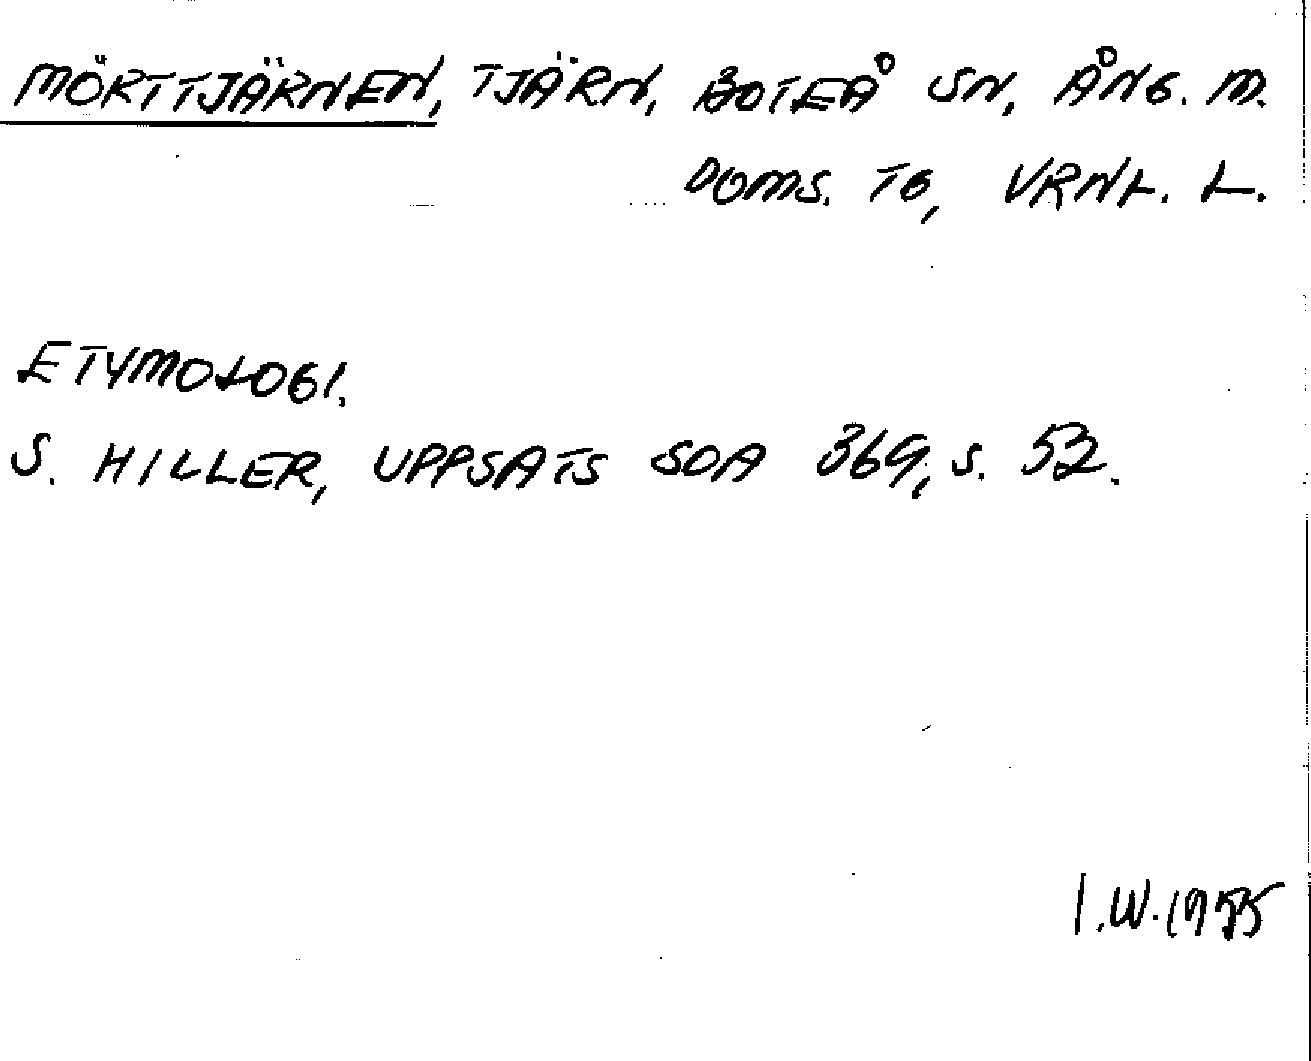 MÖRTTJÄRNEN, TJÄRN, BOTEÅ SN, ÅNG. M.
DOMS. TG, VRNL. L.
ETYMOLOGI.
S. HILLER, UPPSATS SOA 369, S. 52.
I.W.